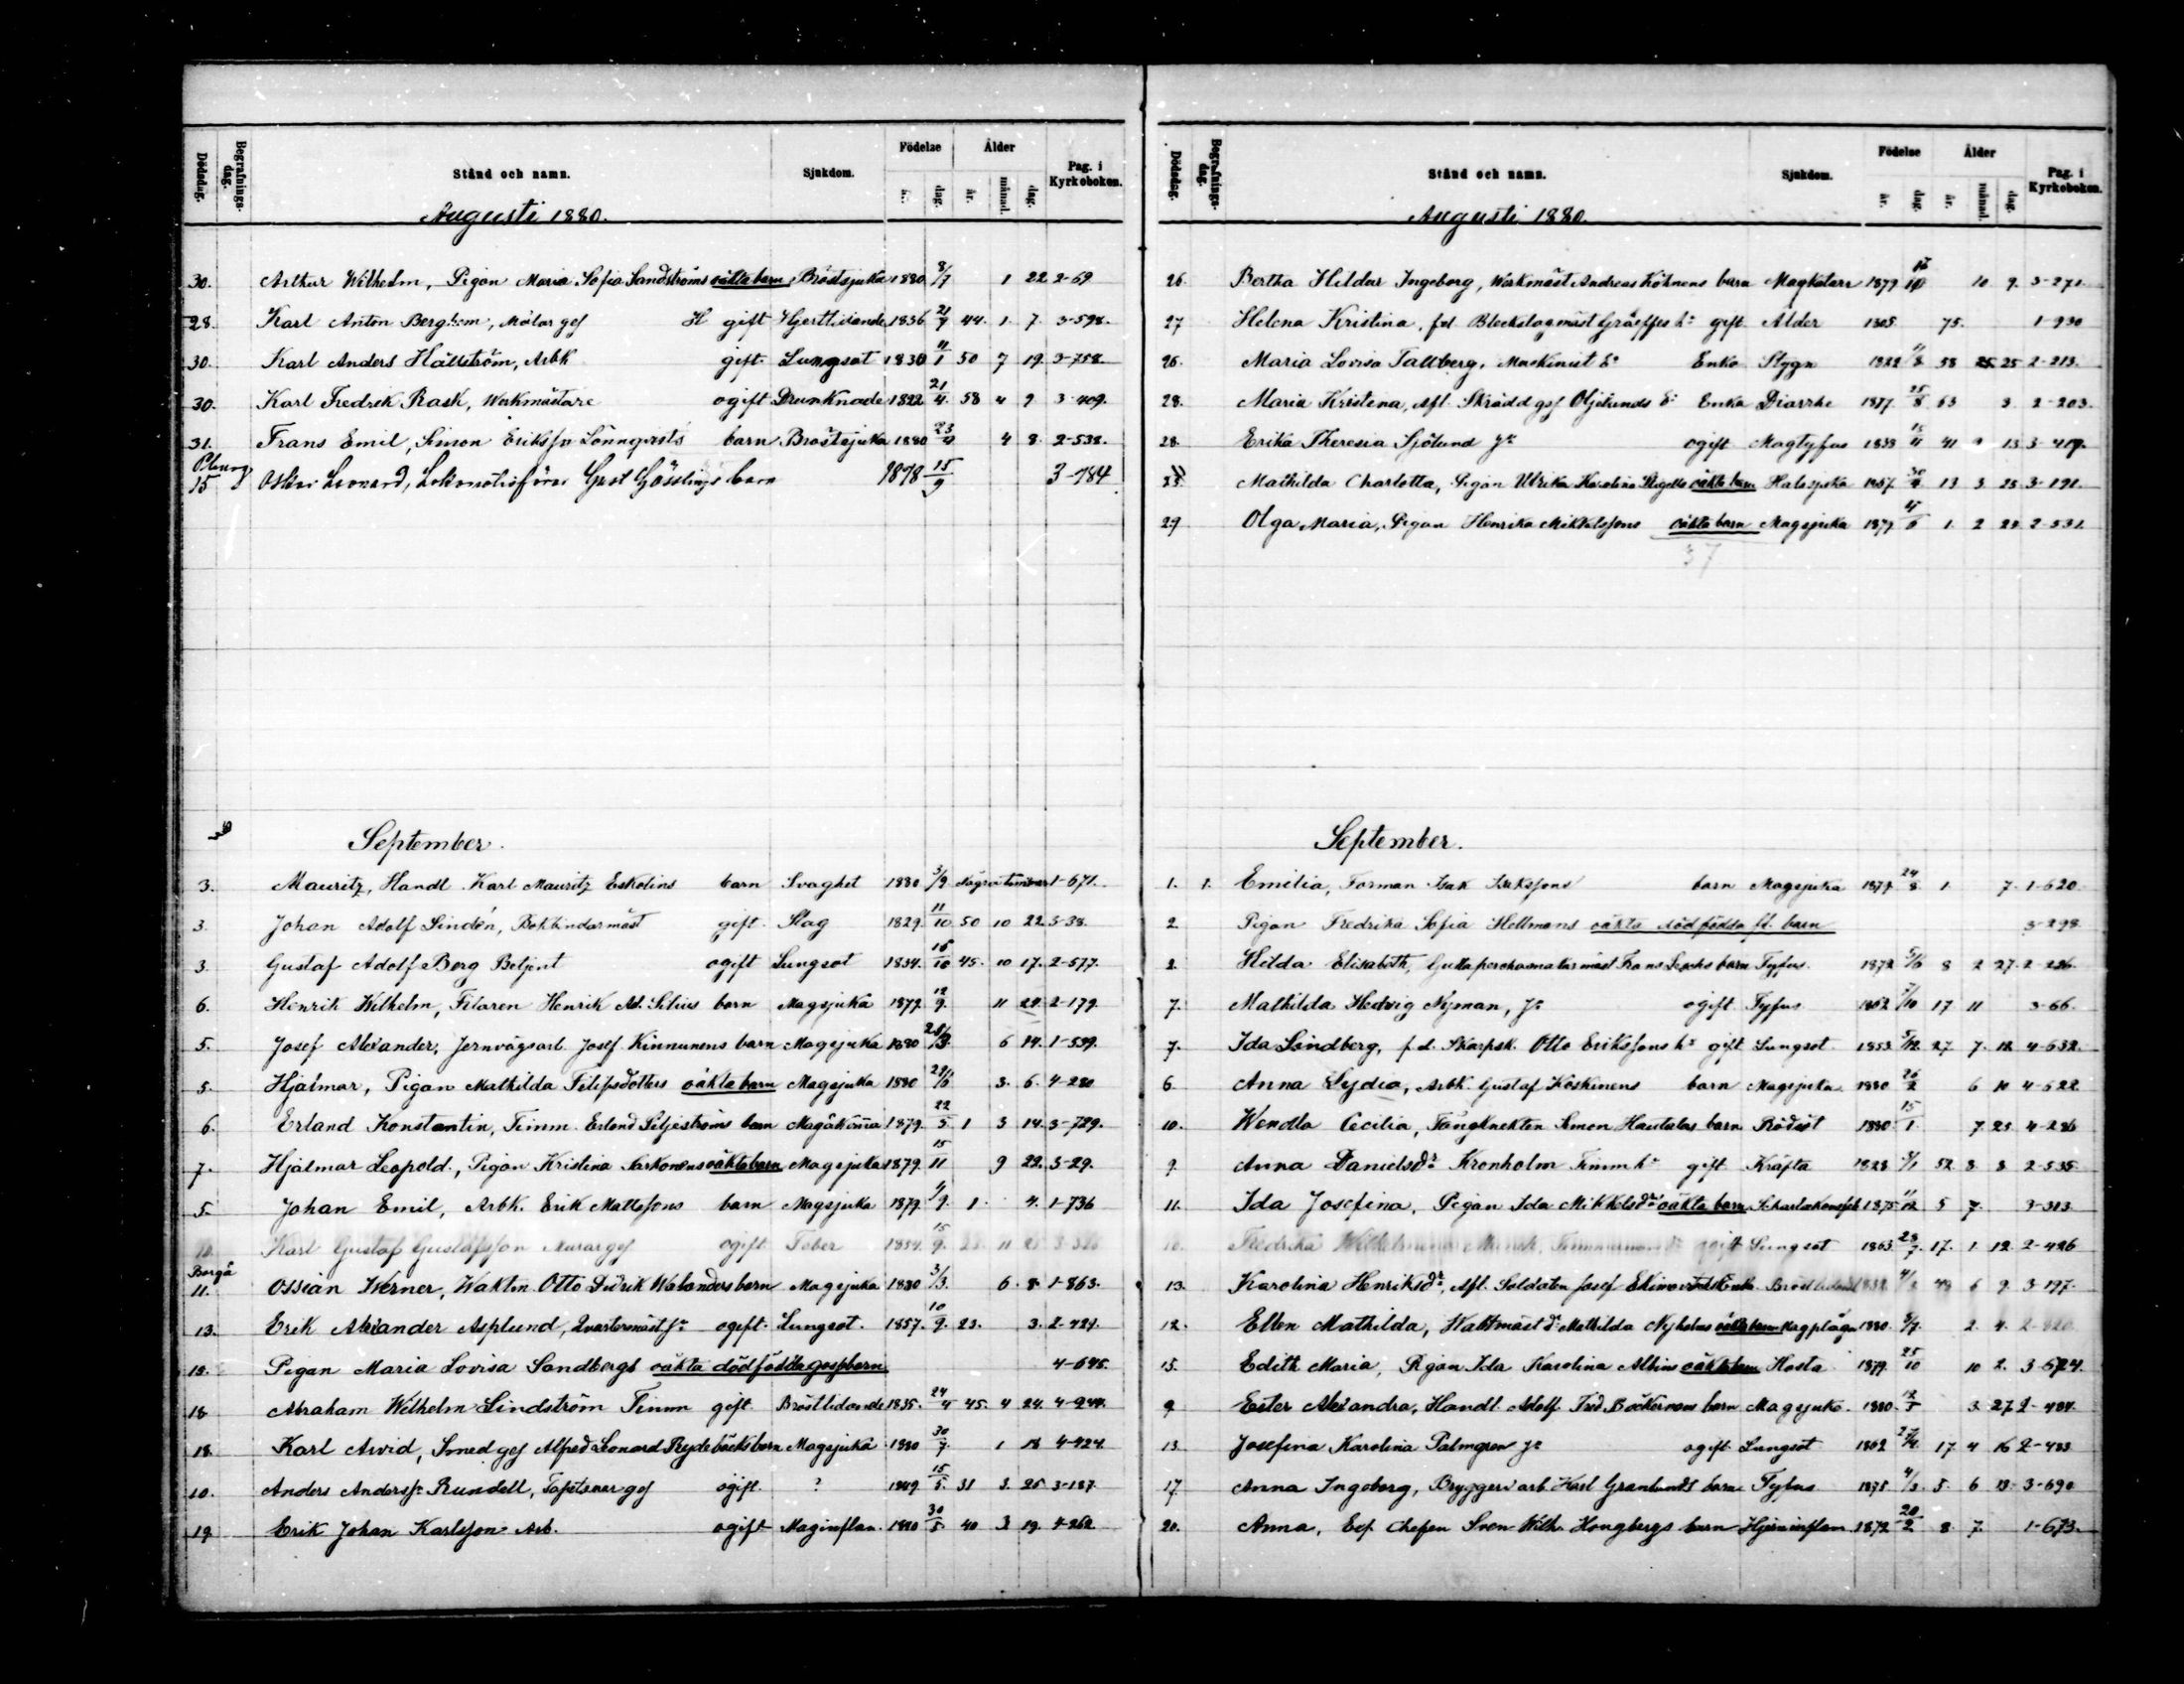 Dödsdag. Begrafnings-dag. Stånd och namn. Sjukdom. Födelse år. dag. Ålder år. månad. dag. Pag. i Kyrkoboken.
Augusti 1880.
30. Arthur Wilhelm, Pigan Maria Sofia Sandströms oäkta barn Bröstsjuka 1880 8/7 1 22 2-69
28. Karl Anton Berghem, Målar ges H gift Hjertlidande 1836 21/7 44. 1. 7. 3-598.
30. Karl Anders Hällström, Arbk gift Lungsot 1830 11/1 50 7 19. 3-758.
30. Karl Fredrik Rask, Werkmästare ogift Drunknade 1822 21/4 58 4 9 3-409.
31. Frans Emil, Simon Eriksson Lönnqvists barn Bröstsjuka 1880 23/4 4 8. 2-538.
15 Oskar Leonard, Lokomotivförar Gust Gösslings barn 1878 15/9 3-784
September.
3. Mauritz, Handl. Karl Mauritz Eskolins barn Svaghet 1880 3/9 Några timmar 1-671.
3. Johan Adolf Lindén, Bokbindarmäst gift. Slag 1829. 11/10 50 10 22. 3-38.
3. Gustaf Adolf Berg Betjent ogift Lungsot 1834. 16/10 45. 10 17. 2-577.
6. Henrik Wilhelm, Filaren Henrik Ad. Silius barn Magsjuka 1879. 12/9. 11 22. 2-179.
5. Josef Alexander, Jernvägsarb. Josef Kinnunens barn Magsjuka 1880 21/3 6 14. 1-539.
5. Hjalmar, Pigan Mathilda Filipsdotters oäkta barn Magsjuka 1880 29/5 3. 6. 4-280
6. Erland Konstantin, Timm. Erland Siljeströms barn Magåkomma 1879. 22/5 1 3 14. 3-729.
7. Hjalmar Leopold, Pigan Kristina Saskonens oäkta barn Magsjuka 1879. 15/11 9 22. 3-29.
5. Johan Emil, Arbk. Erik Mattssons barn Magsjuka 1879. 4/9. 1. 4. 1-736
Karl Gustaf Gustafsson Murar ges ogift Feber 1854. 15/9.
Borgå
11. Ossian Werner, Waktm. Otto Didrik Walanders barn Magsjuka 1880 3/3. 6. 8. 1-863.
13. Erik Alexander Asplund, Qvartermäst ogift. Lungsot. 1857. 10/9. 23. 3. 2-421.
Pigan Maria Lovisa Sandbergs oäkta dödfödda gossbarn 4-645.
18 Abraham Wilhelm Lindström Timm gift. Bröstlidande 1835. 24/4 45. 4 24.
18. Karl Arvid, Smed ges Alfred Leonard Frydebäcks barn Magsjuka 1880 30/7. 1 18 4-424.
10. Anders Anderss. Rundell, Tapetserar ges ogift. ? 1849 15/5. 31 3. 25 3-187.
19. Erik Johan Karlsson Arb. ogift Maginflam. 1840 30/5. 40 3 19. 4-262.
Dödsdag. Begrafnings-dag. Stånd och namn. Sjukdom. Födelse år. dag. Ålder år. månad. dag. Pag. i Kyrkoboken.
Augusti 1880.
26. Bertha Hildur Ingeborg, Werkmäst Andreas Köhnens barn Magkatarr 1879 10 9. 3-271.
27 Helena Kristina, f.d. Bleckslagmäst Gräeffes h:u gift Ålder 1805. 75. 1-930
26. Maria Lovisa Tallberg, Maskinist Enka Stygn 1822 58 25 2-213.
28. Maria Kristina, Afl. Skrädd ges Öfjelunds Enka Diarrhe 1817. 25/8 63 3. 2-203.
28. Erika Theresia Sjölund ogift Magtyfus 1838 15/11 41 9 13 3-419.
Mathilda Charlotta, Pigan Ulrika Karolina oäkta barn Halssjuka 1867. 30/4 13 3. 25 3-191.
29 Olga Maria, Pigan Henrika Mikkelssons oäkta barn Magsjuka 1879. 1. 2 23. 2-531.
37
September.
1. 1. Emilia, Forman Isak Isakssons barn Magsjuka 1879. 24/8 1. 7. 1-620.
2 Pigan Fredrika Sofia Hellmans oäkta dödfödda fl. barn 3-298.
2. Hilda Elisabeth, barn Tyfus. 1872 5/6 8 2 27. 2-226.
7. Mathilda Hedvig Nyman, ogift Tyfus 1862 7/10 17 11 3-66.
7. Ida Lindberg, f.d. Skarpsk. Otto Erikssons h:u gift Lungsot. 1853. 27 7. 12. 4-632.
6 Anna Lydia, Arbk. Gustaf Koskinens barn Magsjuka 1880 26/2 6 10 4-622.
10. Wendla Cecilia, Fångknekten Simon Hautalas barn Rödsot 1880. 15/1. 7. 25. 4-286
9. Anna Danielsdr Kronholm Timm h:u gift Kräfta 1828 52 8. 8 2-535
11. Ida Josefina, Pigan Ida Mikkelsdrs oäkta barn Scharlakansfeb. 1875. 11/12 5 7. 3-313.
Fredrika Wilhelmina Lungsot 1863 28/7. 17. 1. 12. 2-426
13. Karolina Henriksdr, Afl. Soldaten Josef 6 9. 3-197.
12. Ellen Mathilda, Waktmäst Mathilda Nyholms oäkta barn Magplåga 1880. 2. 4.
15. Edith Maria, Pigan Ida Karolina Albins oäkta barn Hosta 1879. 25/10 10 2. 3-674.
9 Ester Alexandra, Handl. Adolf Fred. Böckermans barn Magsjuka. 1880. 3. 27. 2-484.
13. Josefina Karolina Palmgren ogift. Lungsot 1862 17. 4 16 2-433
17. Anna Ingeborg, Bryggeri arb. Karl Granlunds barn Tyfus 1875 4/3. 5. 6 13. 3-690
20. Anna, Exp. Chefen Sven Wilh. Hongbergs barn Hjerninflam. 1872 20/2 8. 7. 1-673.